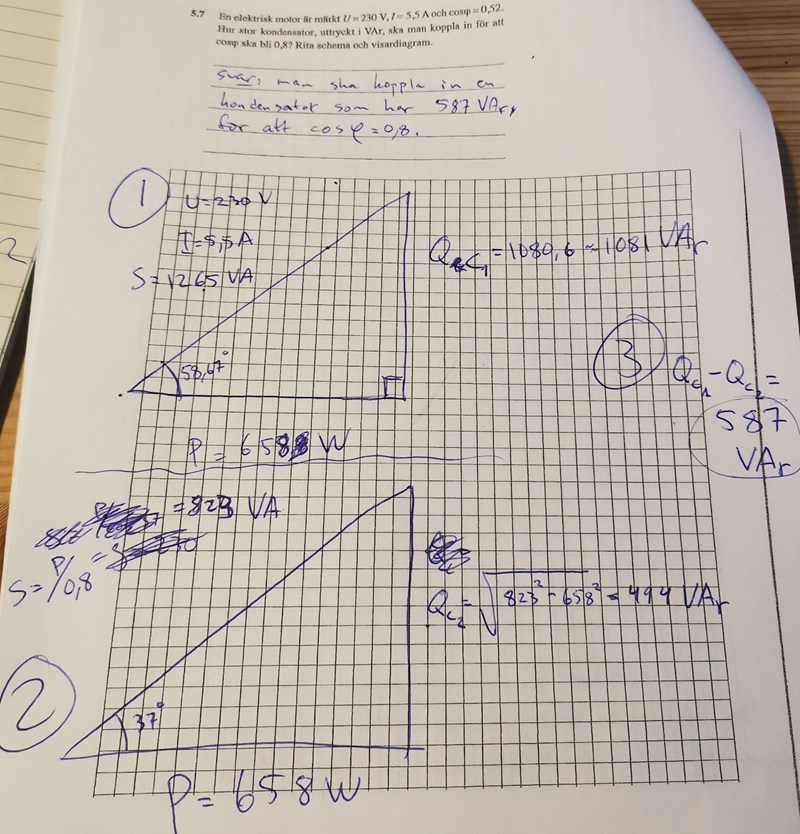 5.7 En elektrisk motor är märkt U = 230 V, I = 5,5 A och cosφ = 0,52.
Hur stor kondensator, uttryckt i VAr, ska man koppla in för att
cosφ ska bli 0,8? Rita schema och visardiagram.
svar; man ska koppla in en
kondensator som har 587 VAr,
för att cosφ = 0,8.
1
U=230 V
I=5,5A
S=1265 VA
QC₁=1080,6≈1081 VAr
58,67°
P = 658 W
3
QC₁-QC₂=
587
VAr
=823 VA
S=P/0,8
QC₂=√823²-658²=494 VAr
2
37°
P=658 W
2